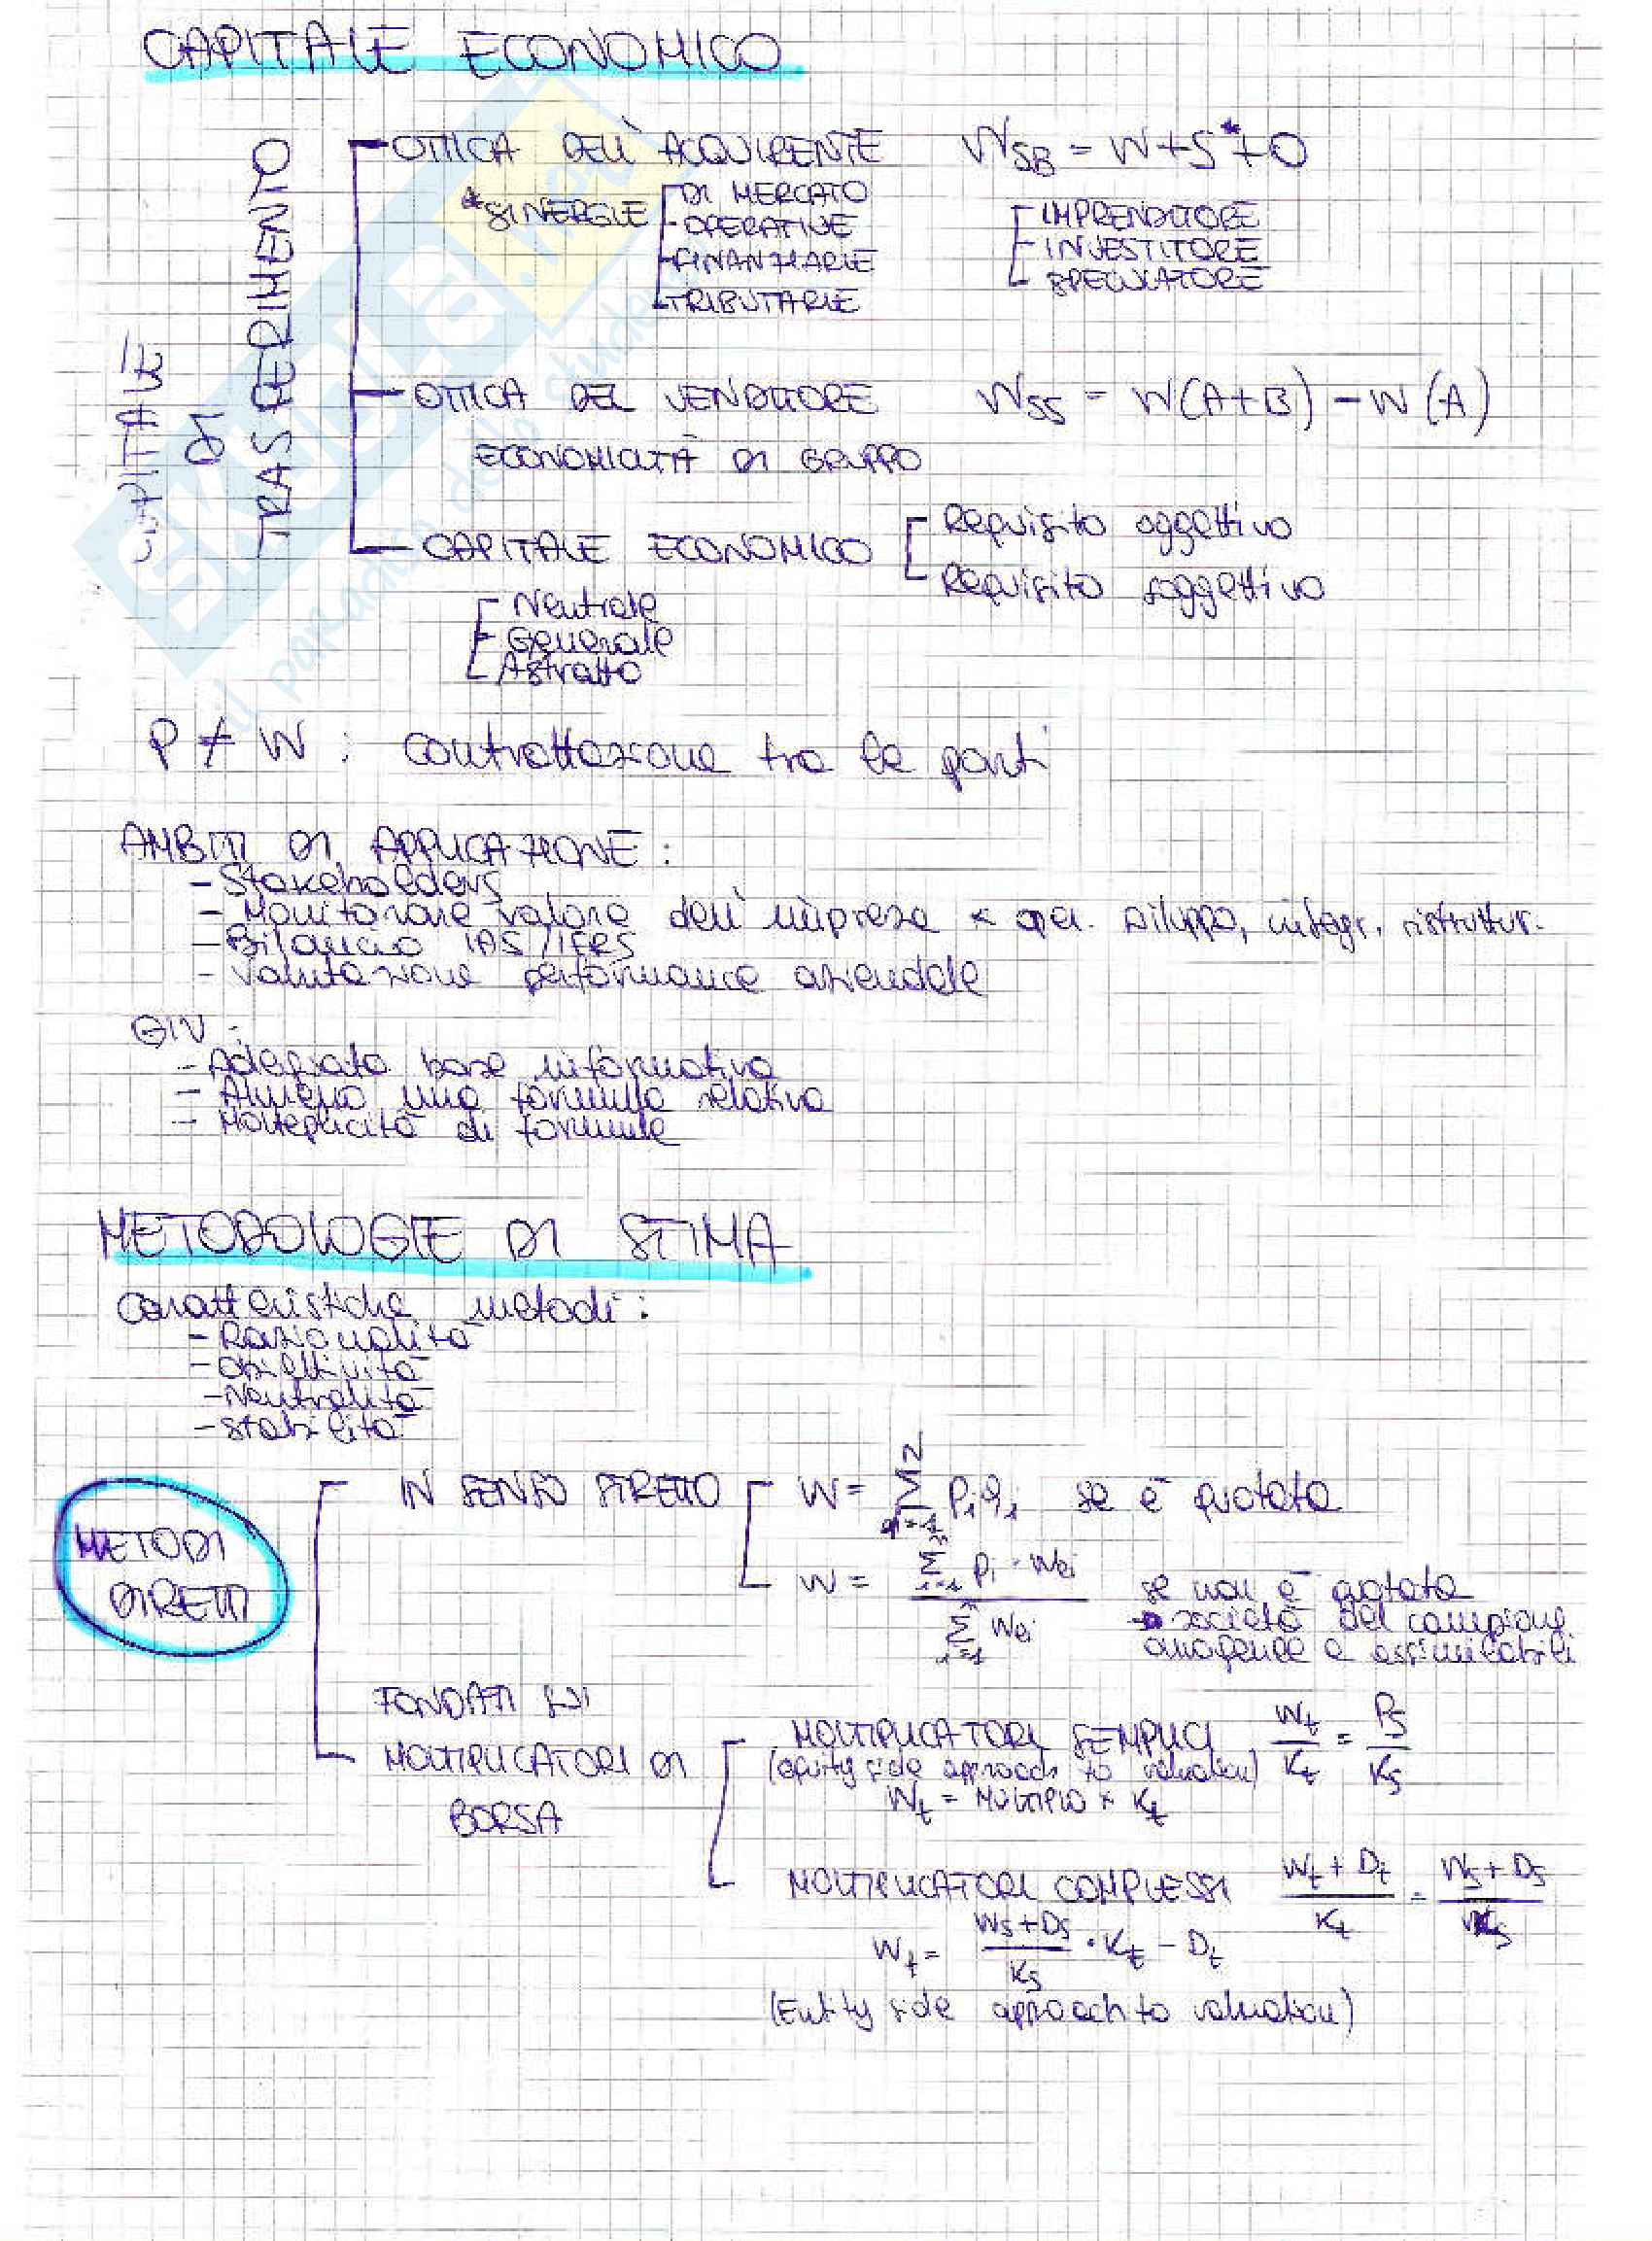 CAPITALE ECONOMICO
CAPITALE DI TRASFERIMENTO
OTTICA DELL'ACQUIRENTE W_SB = W + S* + O
*SINERGIE
DI MERCATO
OPERATIVE
FINANZIARIE
TRIBUTARIE
IMPRENDITORE
INVESTITORE
SPECULATORE
OTTICA DEL VENDITORE W_SS = W(A+B) - W(A)
ECONOMICITÀ DI GRUPPO
CAPITALE ECONOMICO
Requisito oggettivo
Requisito soggettivo
Neutrale
Generale
Astratto
P ≠ W : contrattazione tra le parti
AMBITI DI APPLICAZIONE:
- Stakeholders
- Monitorare valore dell'impresa x oper. sviluppo, integr., ristruttur.
- Bilancio IAS/IFRS
- Valutazione performance aziendale
OIV:
- Adeguata base informativa
- Almeno una formula relativa
- Molteplicità di formule
METODOLOGIE DI STIMA
Caratteristiche metodi:
- Razionalità
- Obiettività
- Neutralità
- Stabilità
METODI DIRETTI
IN SENSO STRETTO
W = Σ p_i q_i se è quotata
W = Σ p_i · w_ei / Σ w_ei se non è quotata
→ società del campione
omogenee e assimilabili
FONDATI SUI
MOLTIPLICATORI DI
BORSA
MOLTIPLICATORI SEMPLICI W_t / K_t = P_s / K_s
(equity side approach to valuation)
W_t = MULTIPLO × K_t
MOLTIPLICATORI COMPLESSI W_t + D_t / K_t = W_s + D_s / K_s
W_t = W_s + D_s / K_s · K_t - D_t
(Entity side approach to valuation)
SKUOLA.net
il paradiso dello studente